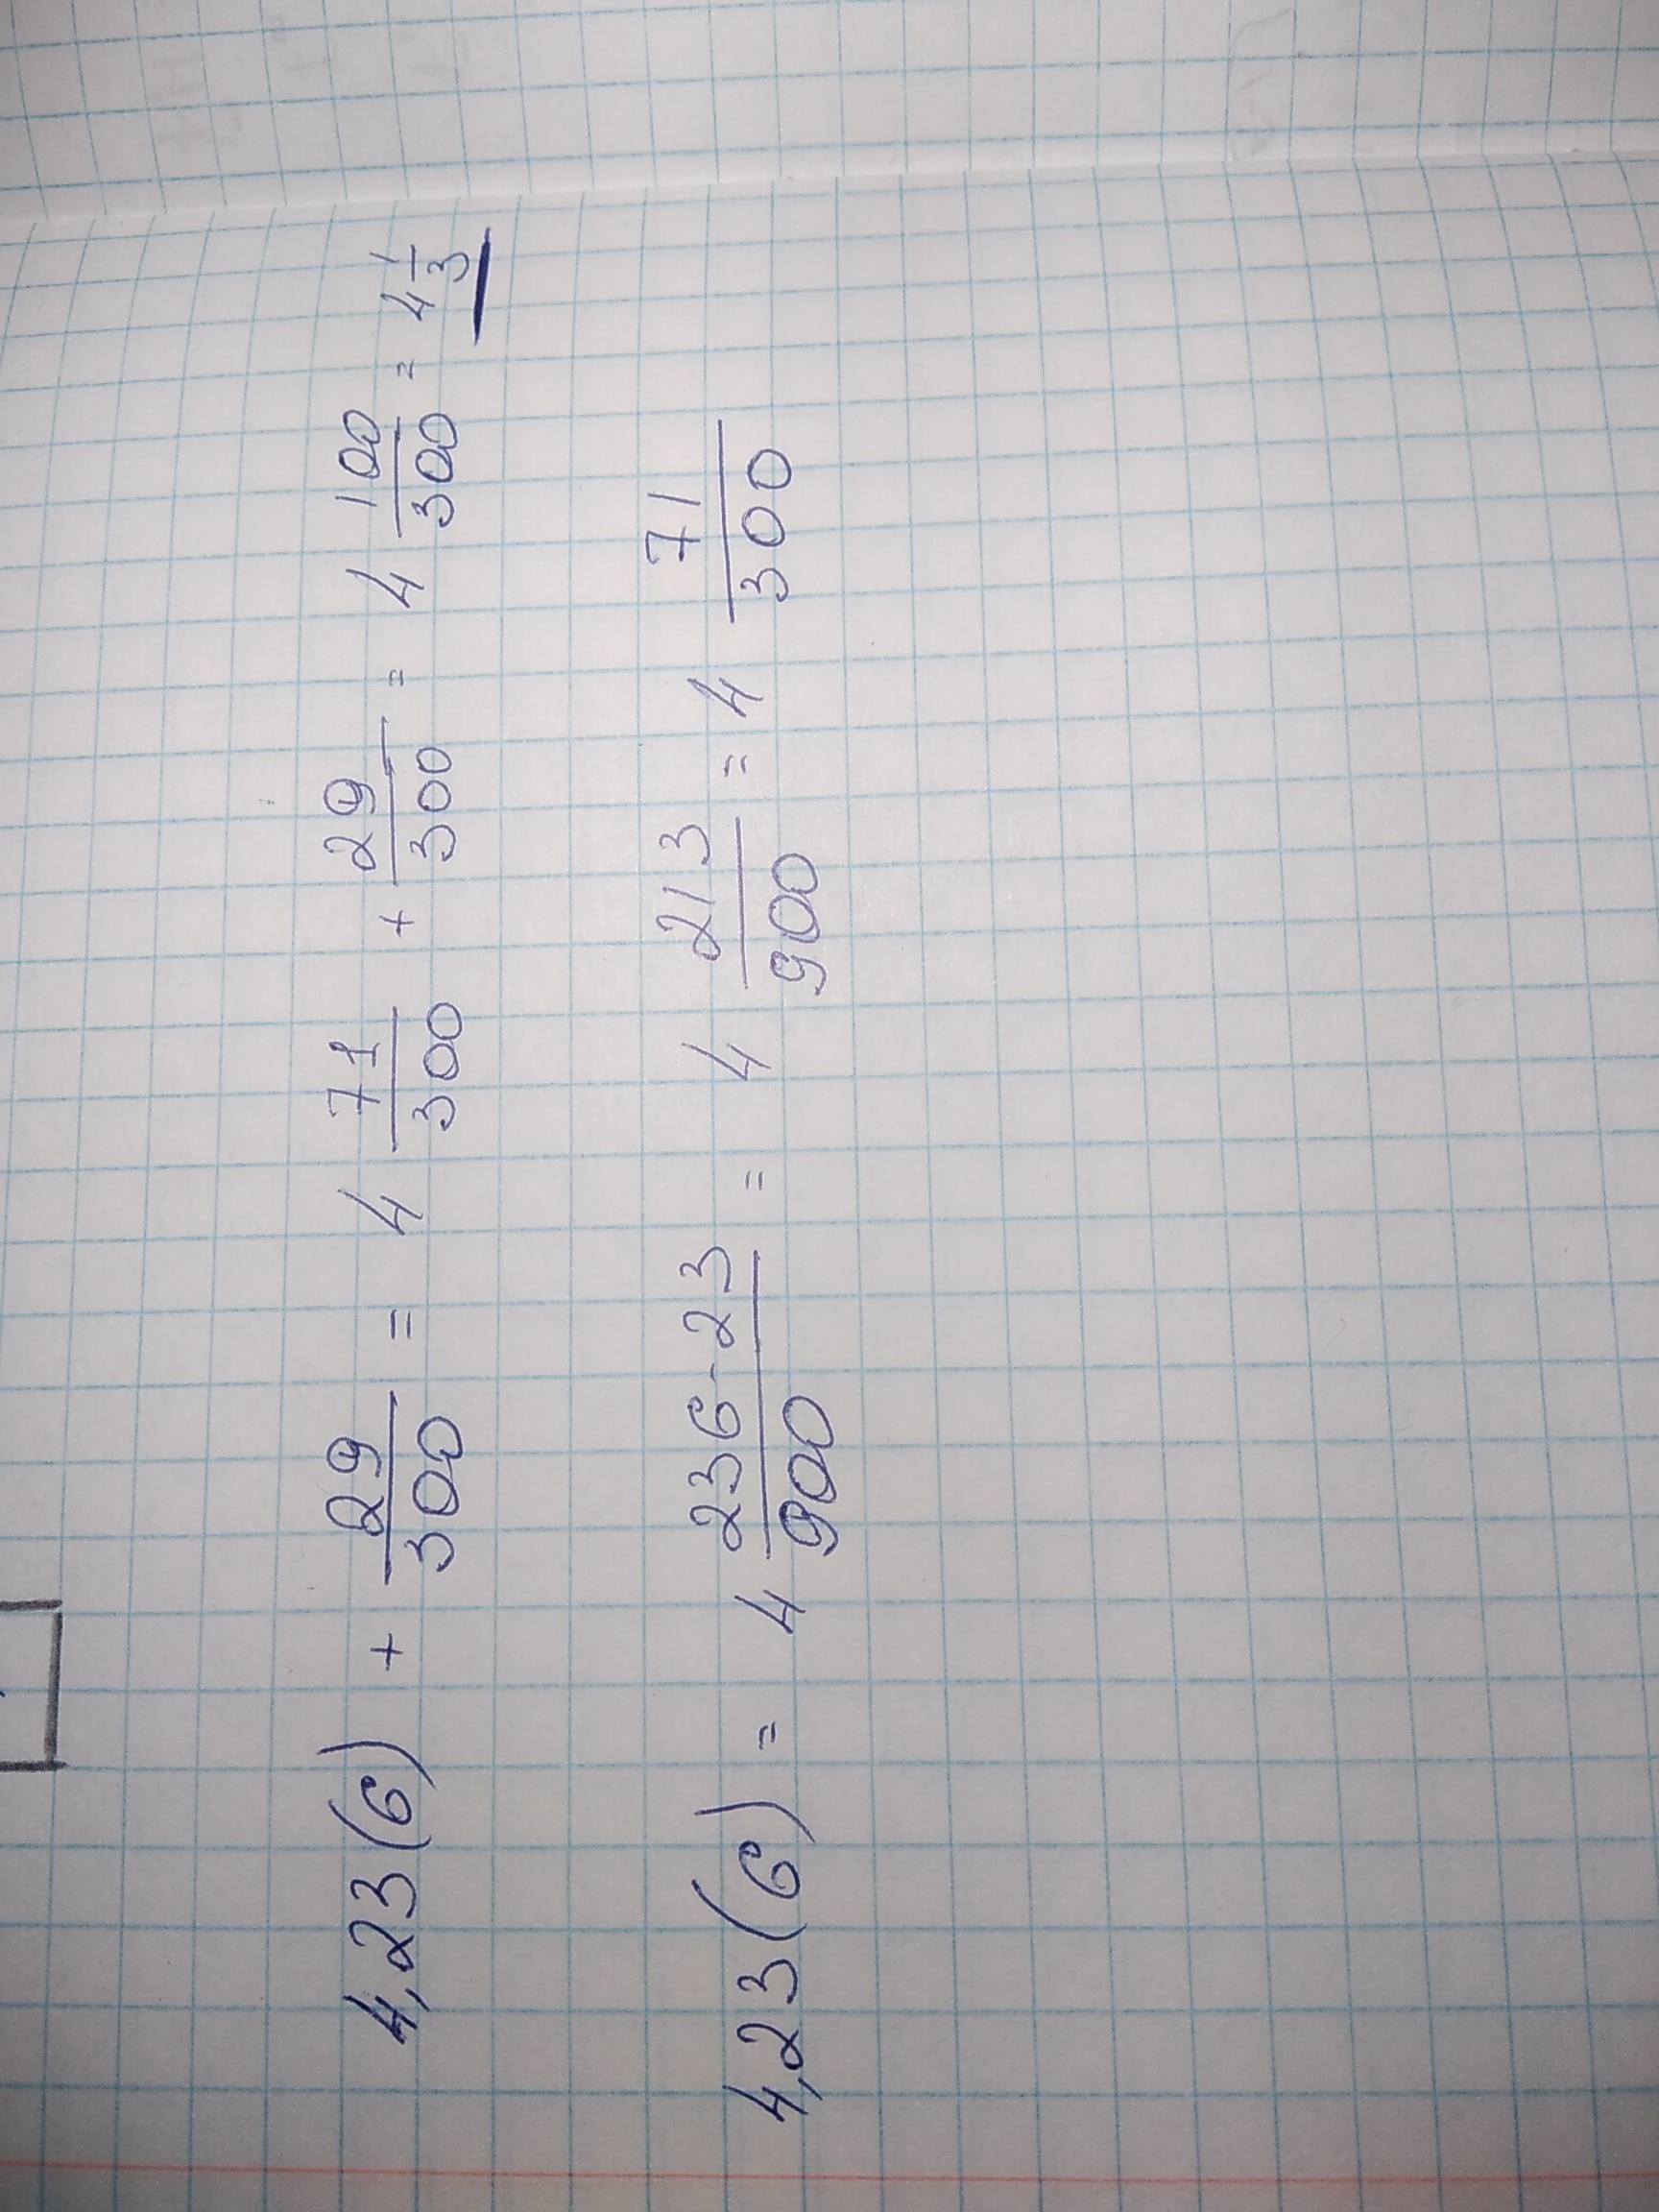 4,23(6) + 29/300 = 4 71/300 + 29/300 = 4 100/300 = 4 1/3
4,23(6) = 4 236-23/900 = 4 213/900 = 4 71/300